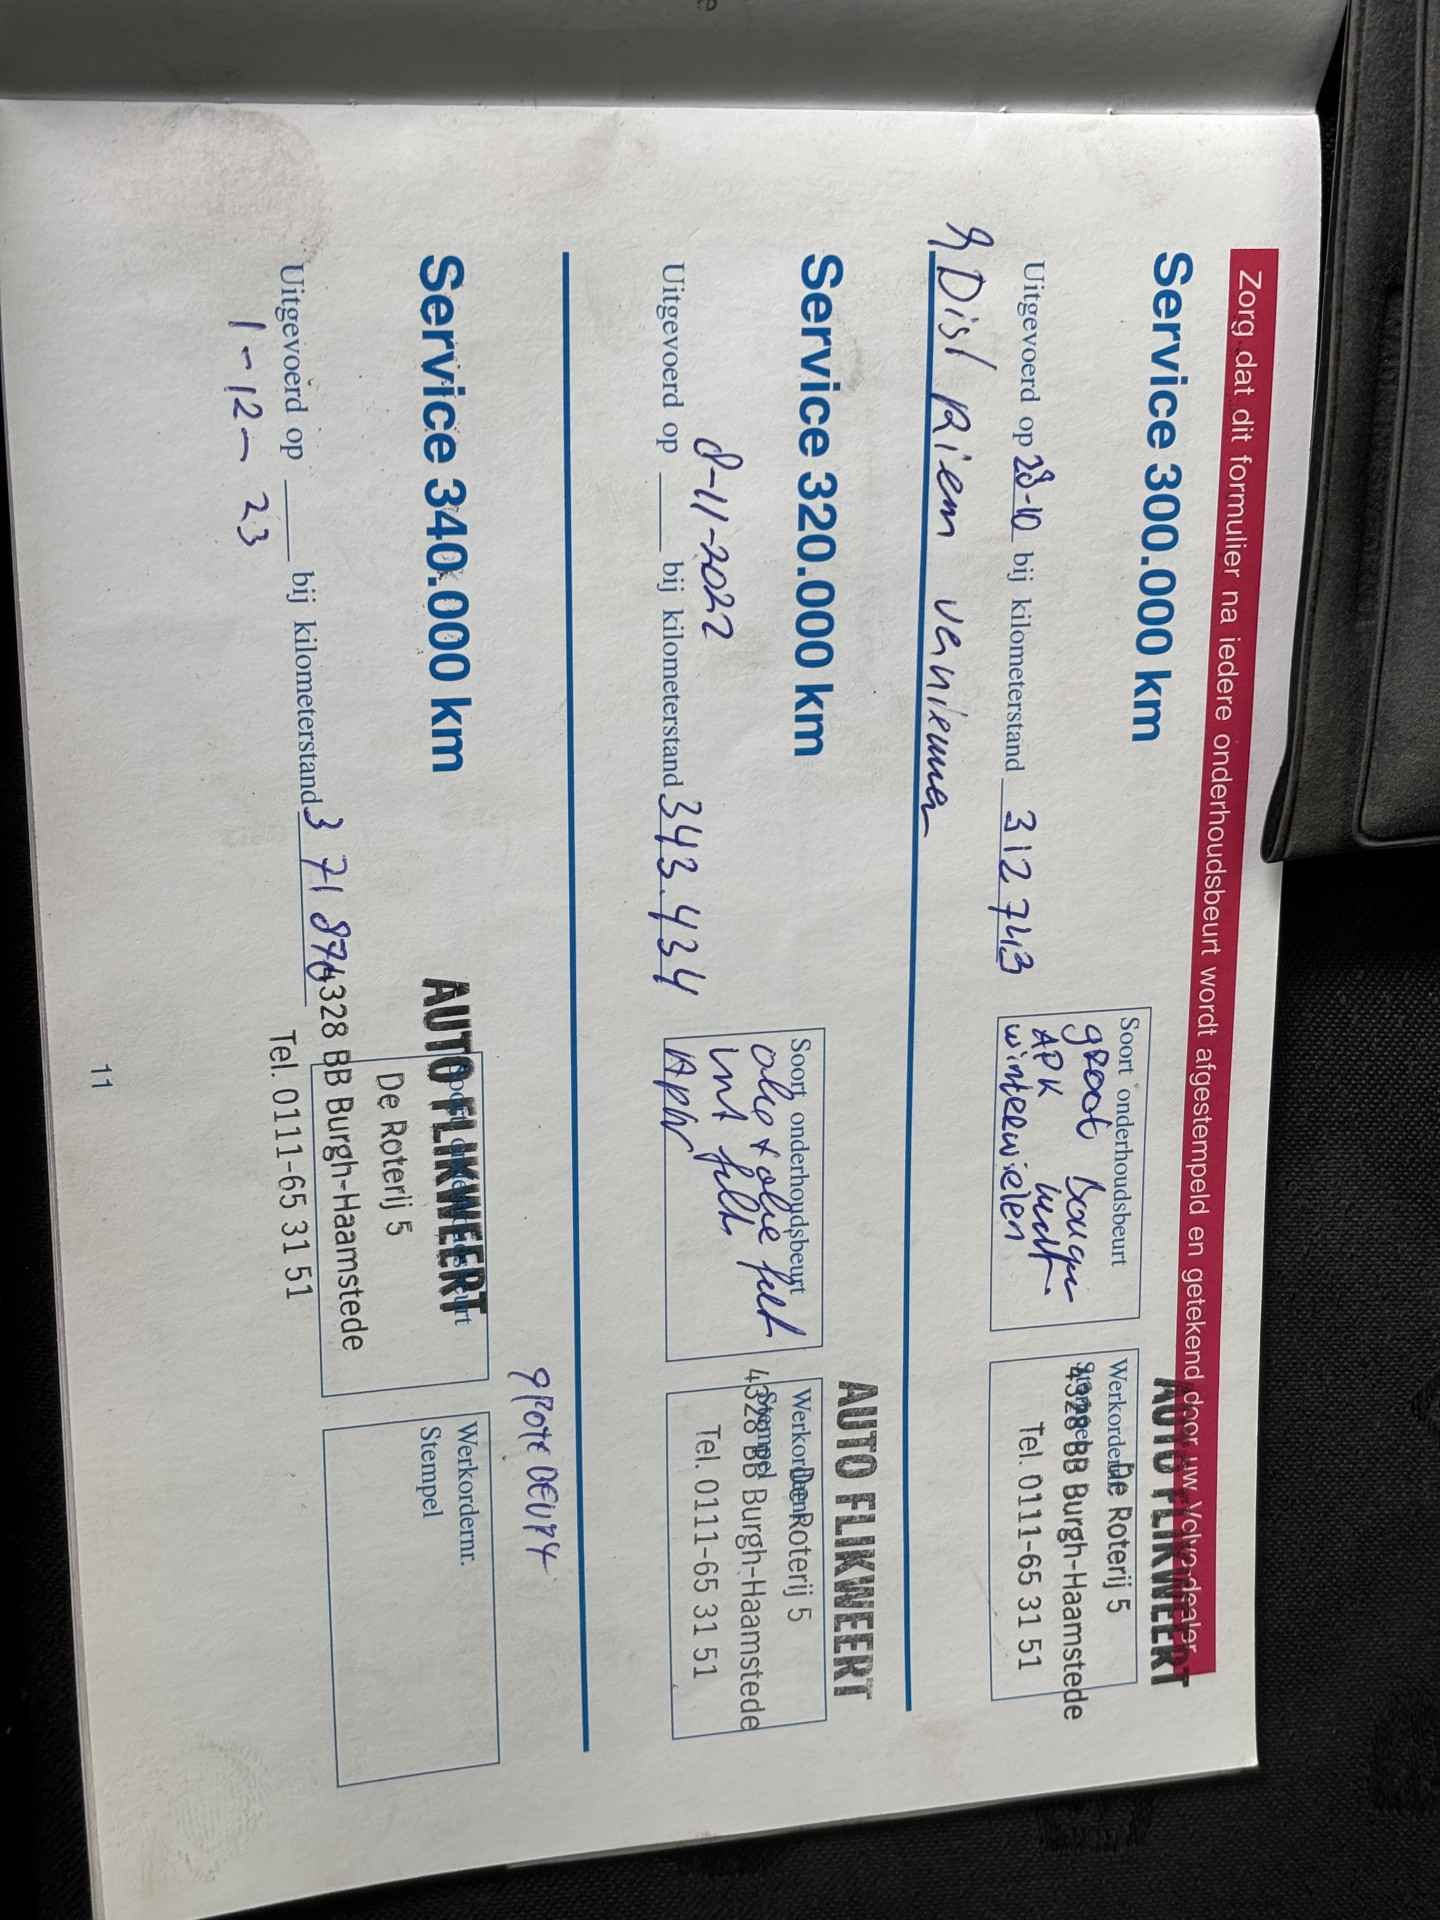 Zorg dat dit formulier na iedere onderhoudsbeurt wordt afgestempeld en getekend door uw Volvo-dealer
Service 300.000 km
Uitgevoerd op 28-10 bij kilometerstand 312743
Soort onderhoudsbeurt
groot
APK
winterwielen
Werkordernr.
Stempel
AUTO FLIKWEERT
De Roterij 5
4328 BB Burgh-Haamstede
Tel. 0111-65 31 51
& Dist Riem
Service 320.000 km
8-11-2022
Uitgevoerd op bij kilometerstand 343.434
Soort onderhoudsbeurt
olie + olie filt
int filt
Werkordernr.
Stempel
AUTO FLIKWEERT
De Roterij 5
4328 BB Burgh-Haamstede
Tel. 0111-65 31 51
Service 340.000 km
Uitgevoerd op bij kilometerstand 371 876
1-12-23
Soort onderhoudsbeurt
AUTO FLIKWEERT
De Roterij 5
4328 BB Burgh-Haamstede
Tel. 0111-65 31 51
grote beurt
Werkordernr.
Stempel
11